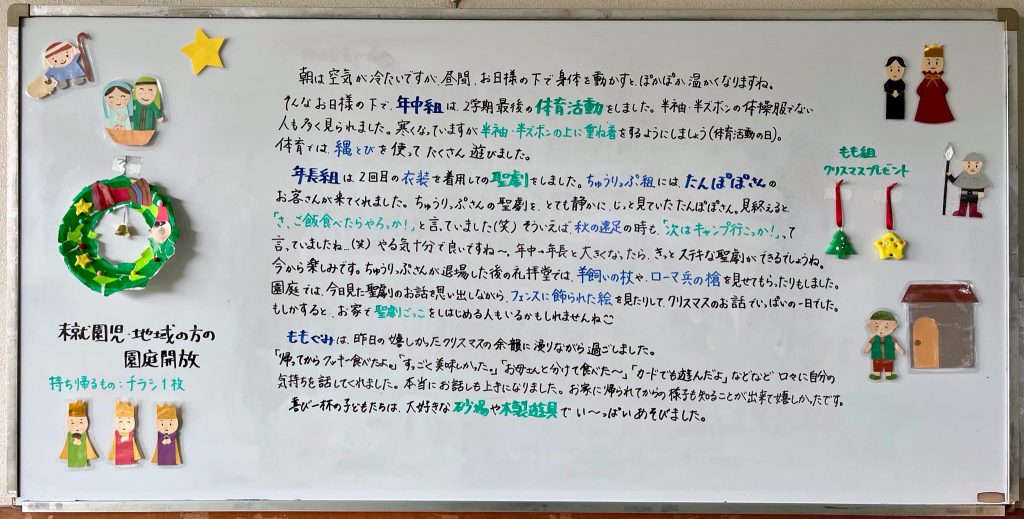 朝は空気が冷たいですが、昼間、お日様の下で身体を動かすと、ぽかぽか温かくなりますね。
そんなお日様の下で、年中組は、2学期最後の体育活動をしました。半袖・半ズボンの体操服でない
人も多く見られました。寒くなっていますが半袖・半ズボンの上に重ね着をするようにしましょう(体育活動の日)。
体育では、縄とびを使ってたくさん遊びました。
年長組は、2回目の衣装を着用しての聖劇をしました。ちゅうりっぷ組には、たんぽぽさんの
お客さんが来てくれました。ちゅうりっぷさんの聖劇を、とても静かに、じっと見ていたたんぽぽさん。見終えると、
「さ、ご飯食べたらやろっか!」と言っていました(笑)そういえば、秋の遠足の時も、「次はキャンプ行こっか!」って
言っていましたね…(笑)やる気十分で良いですね〜。年中→年長と大きくなったら、きっとステキな聖劇ができるでしょうね。
今から楽しみです。ちゅうりっぷさんが退場した後の礼拝堂では、羊飼いの杖や、ローマ兵の槍を見せてもらったりもしました。
園庭では、今日見た聖劇のお話を思い出しながら、フェンスに飾られた絵を見たりして、クリスマスのお話でいっぱいの一日でした。
もしかすると、お家で聖劇ごっこをしはじめる人もいるかもしれませんね
ももぐみは、昨日の嬉しかったクリスマスの余韻に浸りながら過ごしました。
「帰ってからクッキー食べたよ。」「すっごく美味しかった。」「お母さんと分けて食べた〜」「カードでも遊んだよ」などなど口々に自分の
気持ちを話してくれました。本当にお話しも上手になりました。お家に帰られてからの様子も知ることが出来て嬉しかったです。
喜び一杯の子どもたちは、大好きな砂場や木製遊具でい〜っぱいあそびました。
未就園児・地域の方の
園庭開放
持ち帰るもの:チラシ1枚
もも組
クリスマスプレゼント